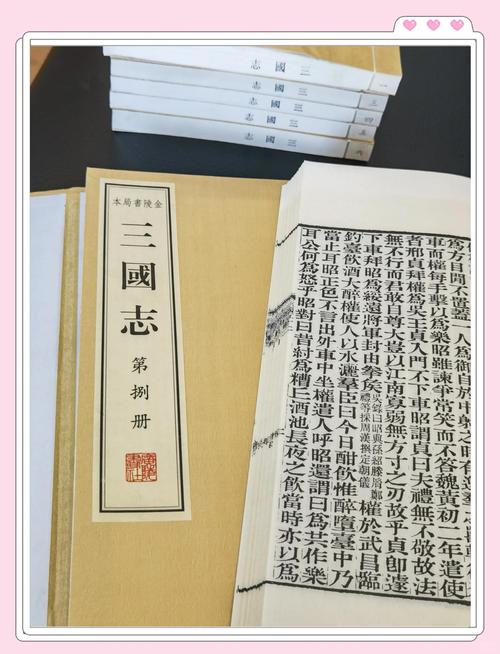 三國志 一
三國志 三
三國志 四
三國志 五
三國志 六
金陵書局本
三國志
第捌冊
為方目閒不置蓋一人為御自於中射之時有逸羣
車而權每手擊以為樂昭雖諫爭常笑而不答魏黃初二年遣使
者邢貞拜權為吳王貞入門不下車昭謂貞曰夫禮無不敬故法
無不行而君敢自尊大豈以江南寡弱無方寸之刃故乎貞即遽
下車拜昭為綏遠將軍封由拳侯吳錄曰昭與孫紹滕胤鄭禮等採周漢撰定朝儀權於武昌臨
釣臺飲酒大醉權使人以水灑羣臣曰今日酣飲惟醉墮臺中乃
當止耳昭正色不言出外車中坐權遣人呼昭還謂曰為共作樂
耳公何為怒乎昭對曰昔紂為糟丘酒池長夜之飲當時亦以為